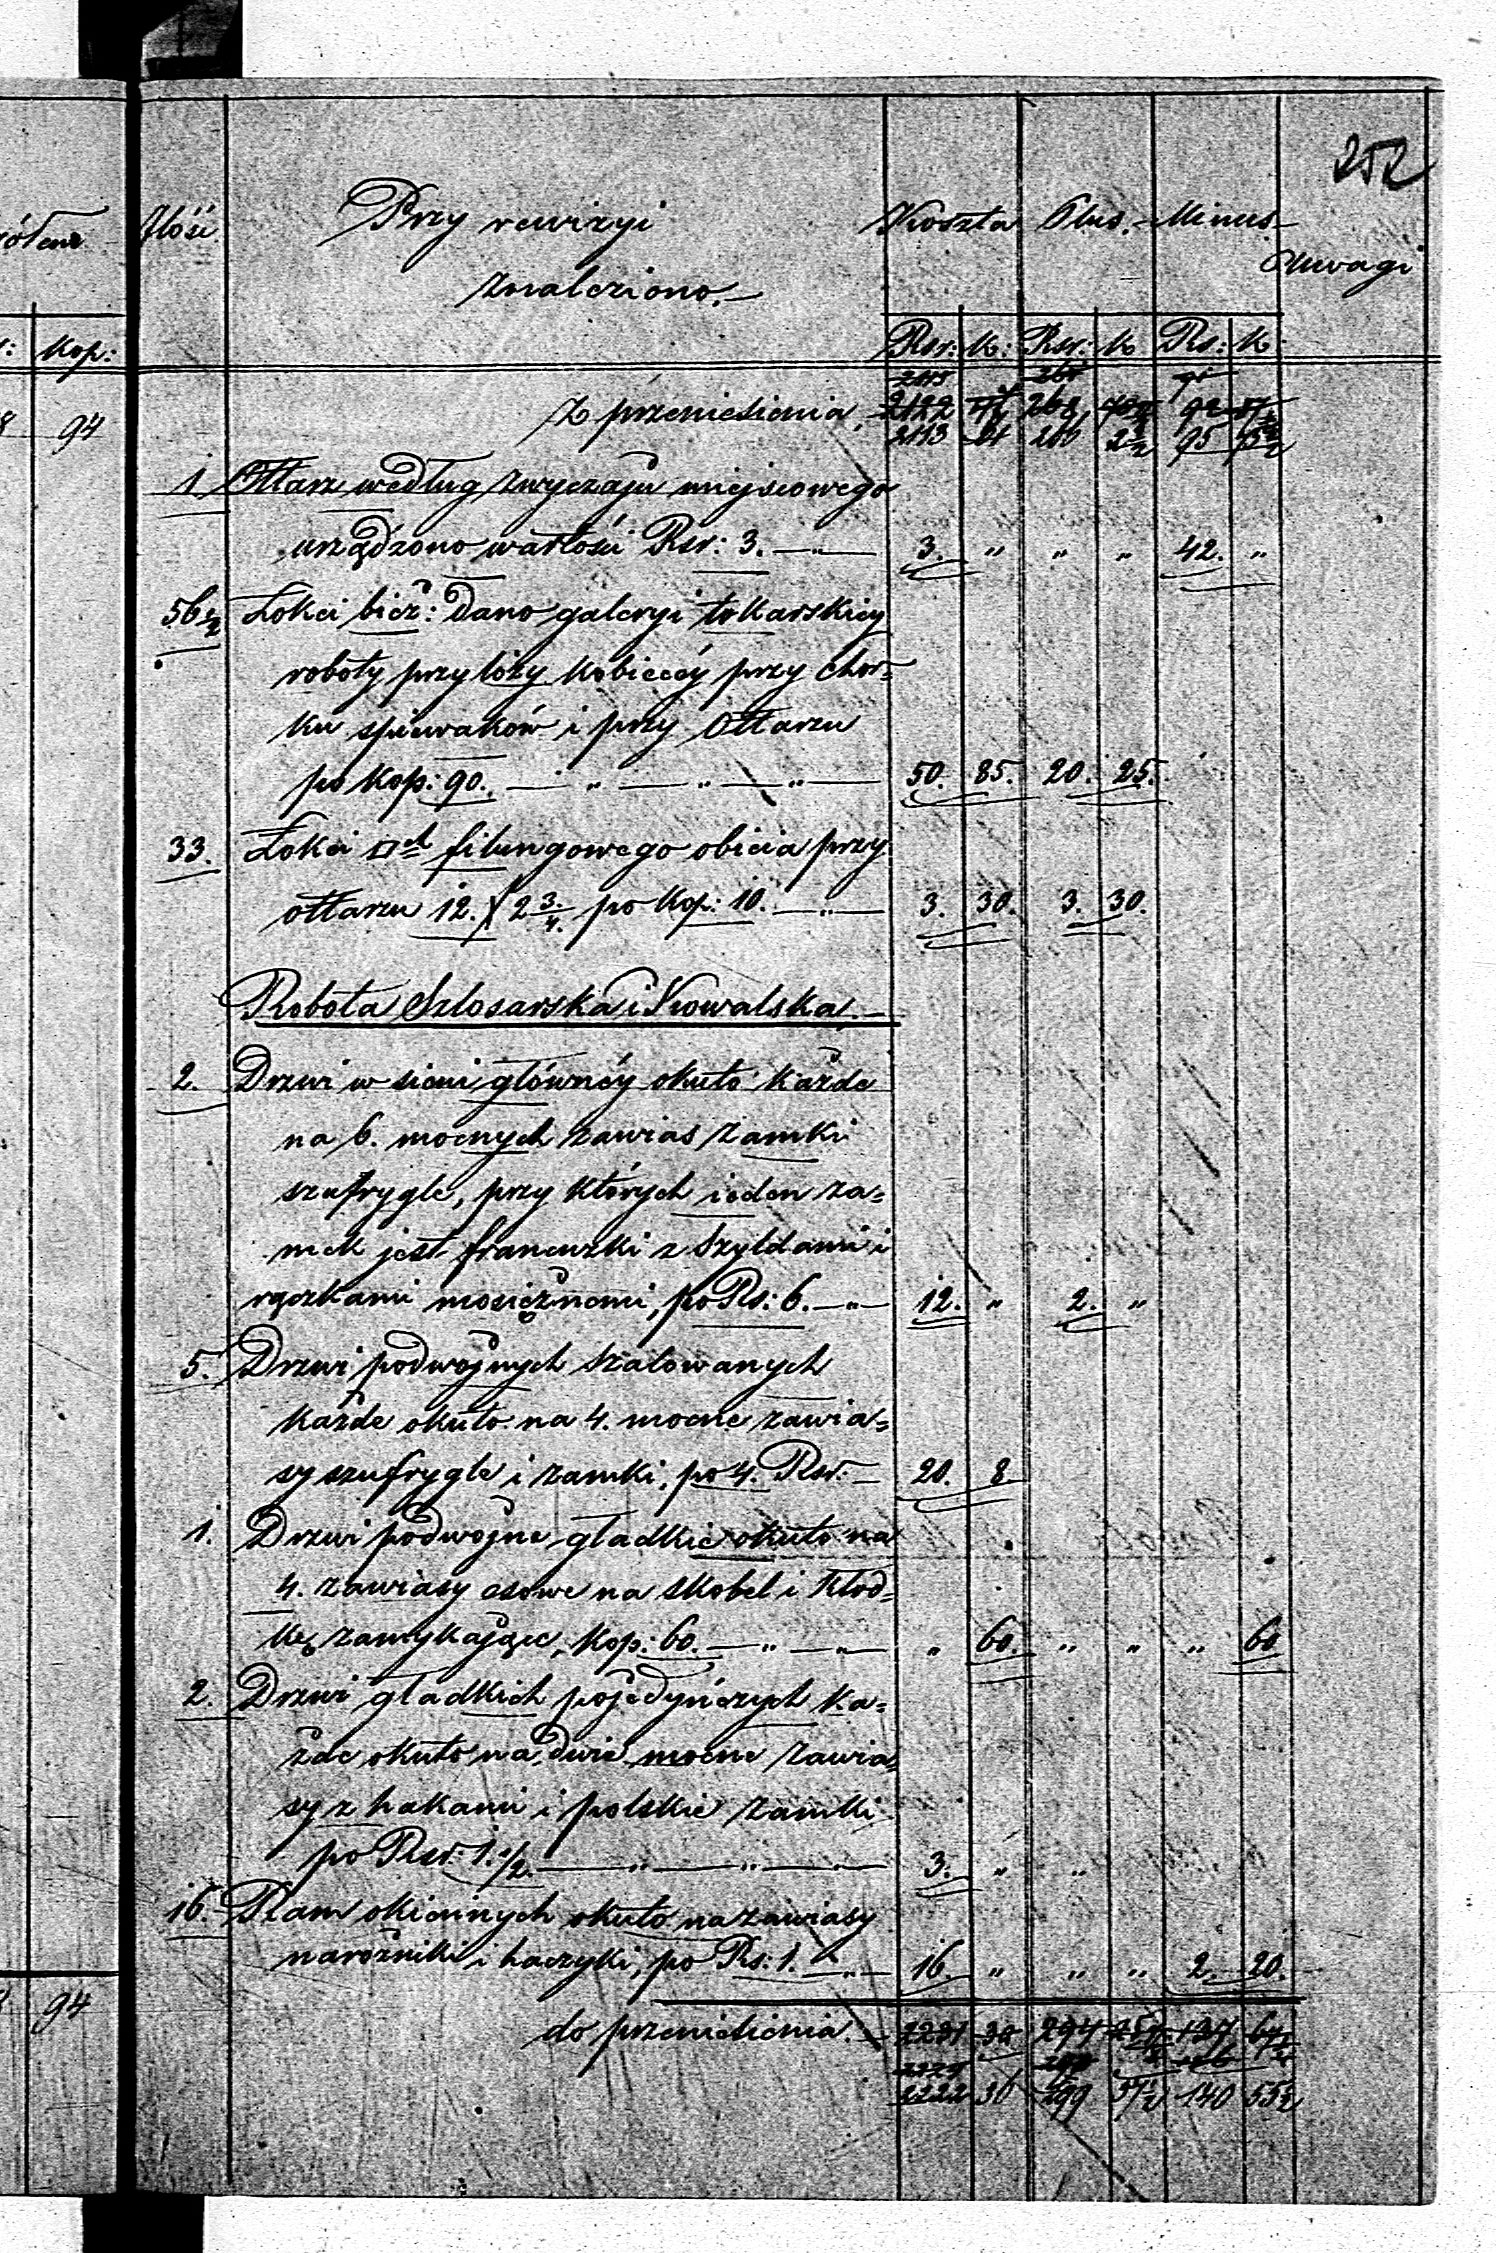 252
Ilość Przy rewizyi Koszta Plus. Minus.
znaleziono.— Uwagi
Rsr: K: Rsr: K Rs: K:
Kop:
Z przeniesienia, 2122 268 92
94 2113 95
1 Ołtarz według zwyczaju miejscowego
urządzono wartości Rsr: 3. — „ — 3. „ „ „ 42. „
56½ Łokci bież: dano galeryi tokarskiey
roboty przy loży kobiecéy przy chor=
ku śpiewaków i przy Ołtarzu
po Kop: 90. — „ — „ — „ — 50. 85. 20. 25.
33. Łokci □ch filungowego obicia przy
ołtarzu 12. X 2 3/4. po Kop: 10. — „ — 3. 30. 3. 30.
Robota Szlosarska i Kowalska.—
2. Drzwi w sieni głównéy okuto każde
na 6. mocnych zawias zamki
szufrygle, przy których ieden za=
mek jest francuzki z szyldami i
rączkami mosiężnemi, po Rs: 6. — „ — 12. „ 2. „
5. Drzwi podwojnych szalowanych
każde okuto na 4. mocne zawia=
sy szufrygle i zamki, po 4. Rsr. — 20. 8.
1. Drzwi podwojne gładkie okuto na
4. zawiasy esowe na skobel i kłod=
kę zamykające, Kop: 60. — „ — „ — „ 60. „ „ „ 60
2. Drzwi gładkich pojedyńczych ka=
żde okuto na dwie mocne zawia=
sy z hakami i polskie zamki
po Rsr: 1. 1/2. — „ — „ — „ — 3. „ „
16. Ram okiennych okuto na zawiasy
narożniki i haczyki, po Rs: 1. — „ — 16. „ „ „ 2. 20.
do przeniesienia. — 2231 38 294 137
94
2222 36 299 57½ 140 55½